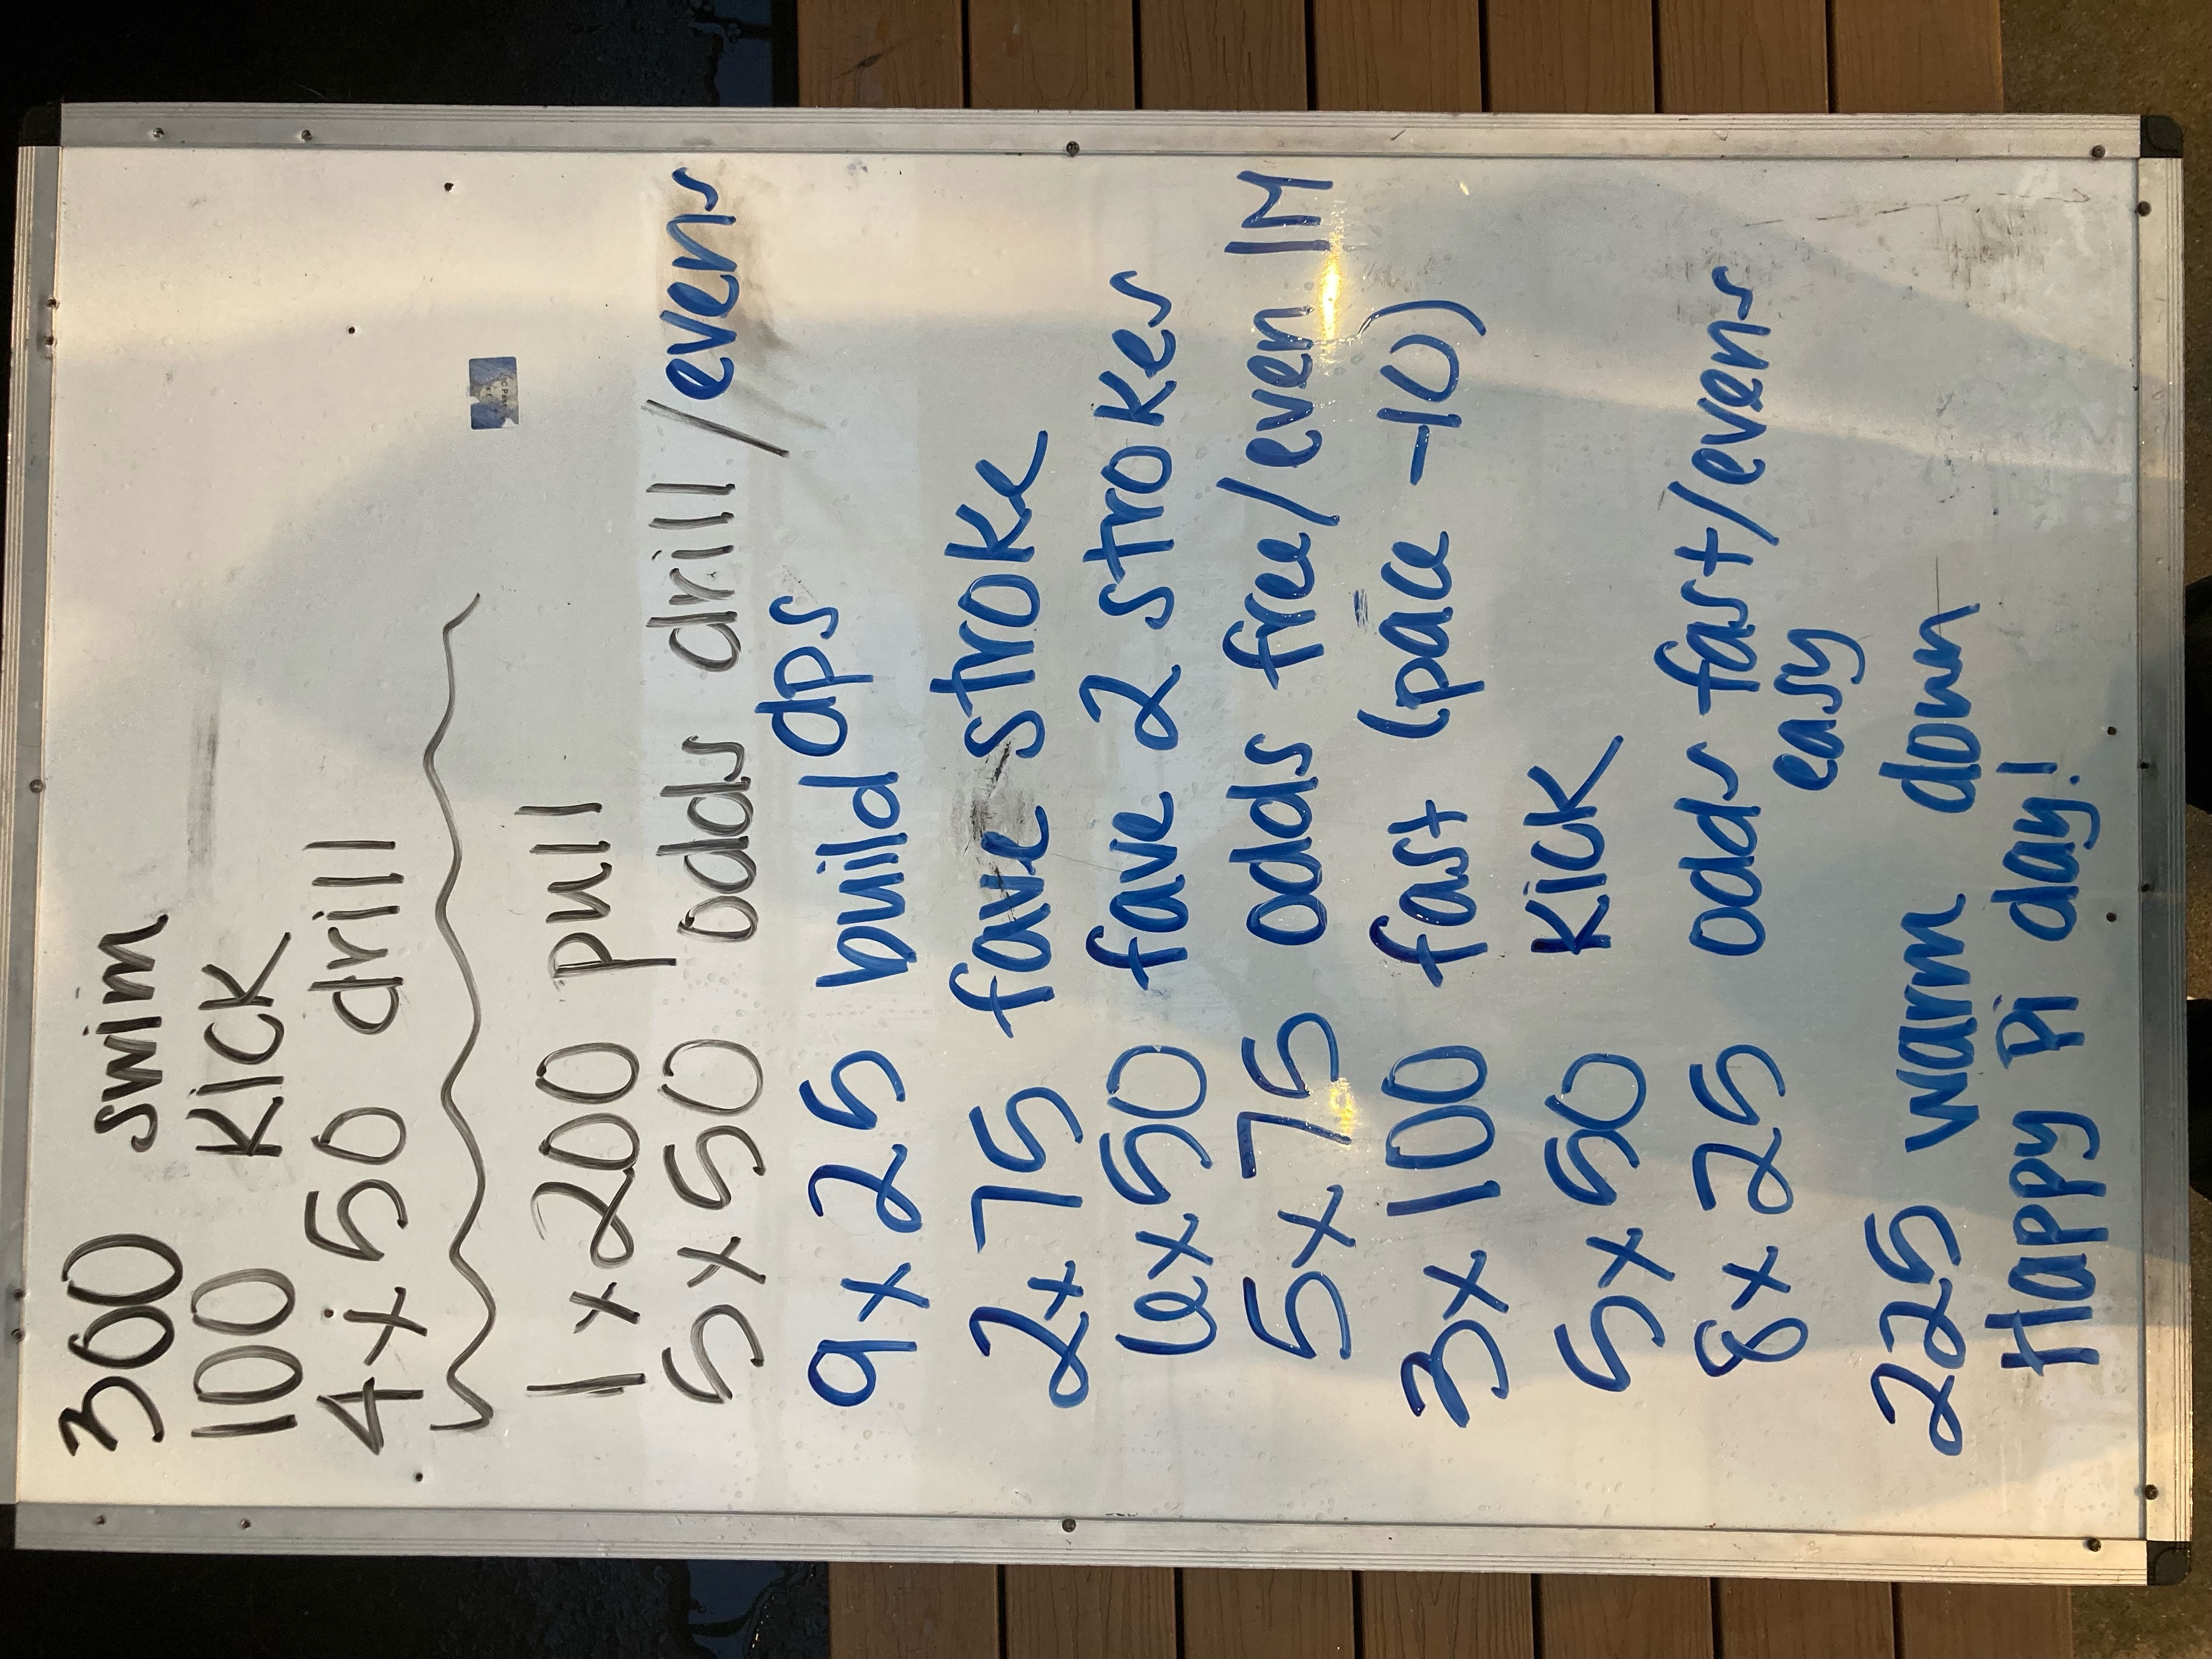 300 swim
100 kick
4x50 drill
1x200 pull
5x50 odds drill/evens
9x25 build dps
2x75 fave stroke
6x50 fave 2 strokes
5x75 odds free/even IM
3x100 fast (pace -10)
5x50 kick
8x25 odds fast/evens
easy
225 warm down
Happy Pi day!